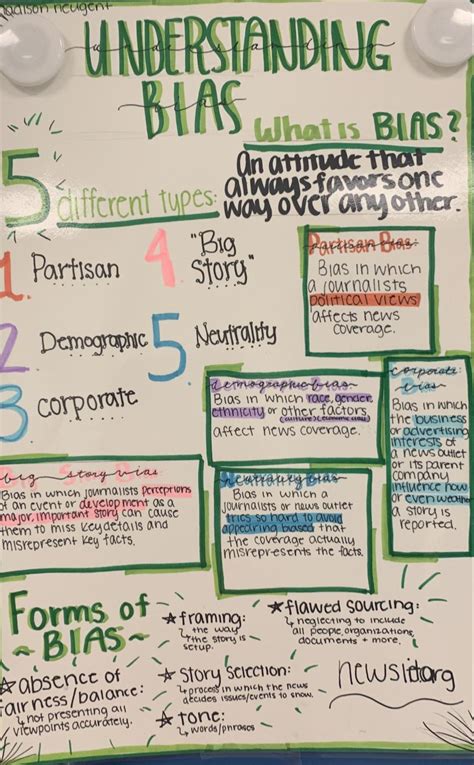 Madison Neugent
UNDERSTANDING
understanding
BIAS
bias
What is BIAS?
An attitude that
always favors one
way over any other.
5 different types:
1. Partisan
2. Demographic
3 corporate
4. "Big
Story"
5 Neutrality
Partisan Bias
Bias in which
a journalists
political views
affects news
coverage.
demographic bias
Bias in which race, gender,
ethnicity or other factors
affect news coverage.
corporate
bias
Bias in which
the business
or advertising
interests of
a news outlet
or its parent
company
influence how
or even weather
a story is
reported.
big story bias
Bias in which journalists perceptions
of an event or development as a
major, important story can cause
them to miss key details and
misrepresent key facts.
Neutrality bias
Bias in which a
journalists or news outlet
tries so hard to avoid
appearing biased that
the coverage actually
misrepresents the facts.
Forms of
~ BIAS ~
★ absence of
fairness/balance:
↳ not presenting all
viewpoints accurately.
★ framing:
↳ the way
the story is
setup.
★ story selection:
↳ process in which the news
decides issues/events to show.
★ tone:
↳ words/phrases
★ flawed sourcing:
↳ neglecting to include
all people, organizations,
documents + more.